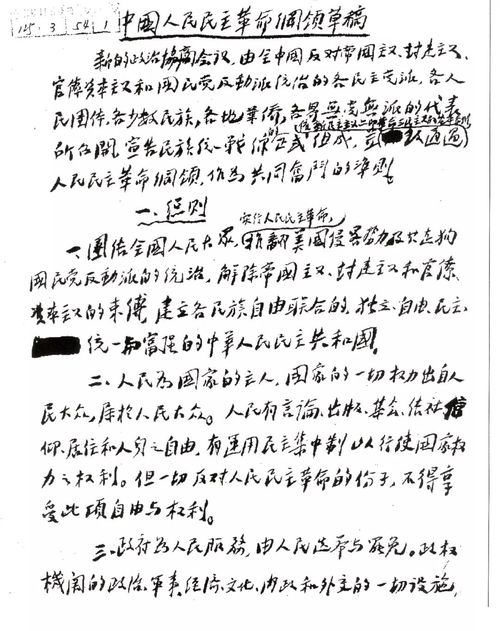 145 3 54 1
中國人民民主革命綱領草稿
新的政治協商会议，由全中國反对帝國主义、封建主义、
官僚资本主义和國民党反動派统治的各民主党派、各人
民團体、各少数民族、各地華侨、各界無党無派的代表
所召開，宣告民族统一戰線的正式组成，並 認通過
人民民主革命綱領，作为共同奮鬥的準则。
一、总则
实行人民民主革命，
一、團结全國人民大眾，推翻美國侵畧势力及其走狗
國民党反動派的统治，解除帝國主义、封建主义和官僚
资本主义的束缚，建立各民族自由联合的、独立、自由、民主、
统一和富强的中華人民民主共和國。
二、人民为國家的主人，國家的一切权力出自人
民大众，属於人民大众。人民有言論、出版、集会、结社、信
仰、居住和人身之自由，有運用民主集中制以行使國家权
力之权利。但一切反对人民民主革命的份子，不得享
受此项自由与权利。
三、政府为人民服務，由人民选举与罷免。政权
機関的政治、軍事、经济、文化、内政和外交的一切设施，